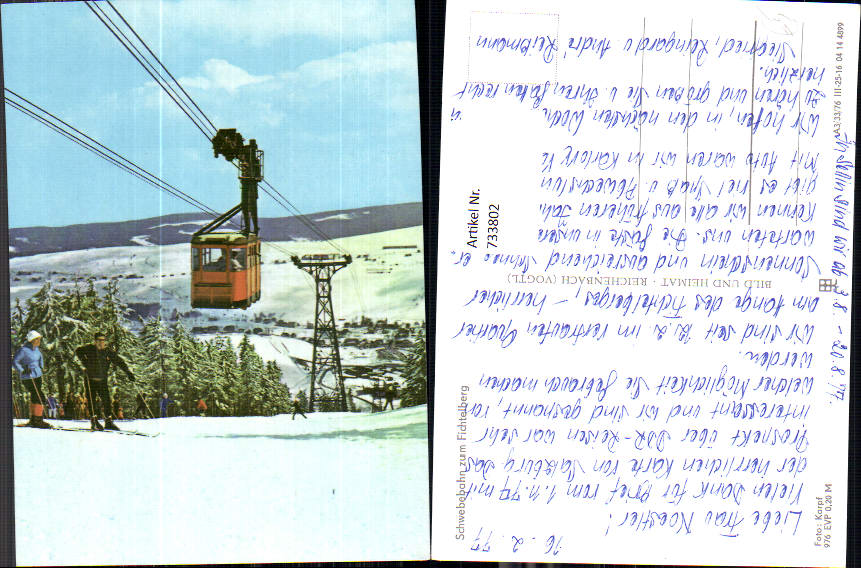 16. 2. 77
Liebe Frau
Vielen Dank für Brief vom 1.11.77 mit
der herrlichen Karte von Salzburg. Das
Prospekt über DDR-Reisen war sehr
interessant und wir sind gespannt, von
welcher Möglichkeit Sie Gebrauch machen
werden.
Wir sind seit 12.2. im vertrauten Quartier
am Hange des Fichtelberges, - herrlicher
Sonnenschein und ausreichend Schnee er-
warteten uns. Die Gäste in unsem
kennen wir alle aus früheren Jah.
gibt es viel Spaß u. Abwechslun
Mit Auto waren wir in
Wir hofen, in den nächsten Woch.
zu hören und grüßen Sie u. Ihren recht
herzlich.
Siegfried, Reingard u. André Reißmann
wir ab 3.8. - 20.8.77.
Schwebebahn zum Fichtelberg
BILD UND HEIMAT · REICHENBACH (VOGTL)
Foto: Karpf
976 EVP 0,20 M
A3/33/76 III-25-16 04 14 4899
Artikel Nr.
733802